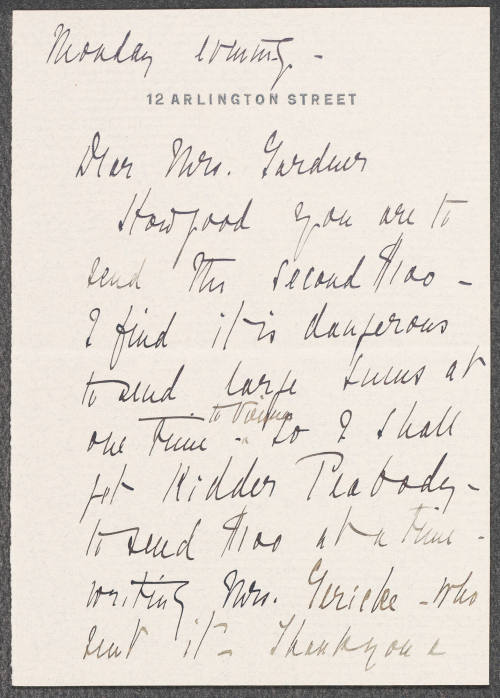 Monday evening -
12 ARLINGTON STREET
Dear Mrs. Gardner
How good you are to
send this second $100 -
I find it is dangerous
to send large sums at
one time - So I shall
to Vienna
get Kidder Peabody -
to send $100 at a time -
writing Mrs. Gericke - who
sent it - Thank you a